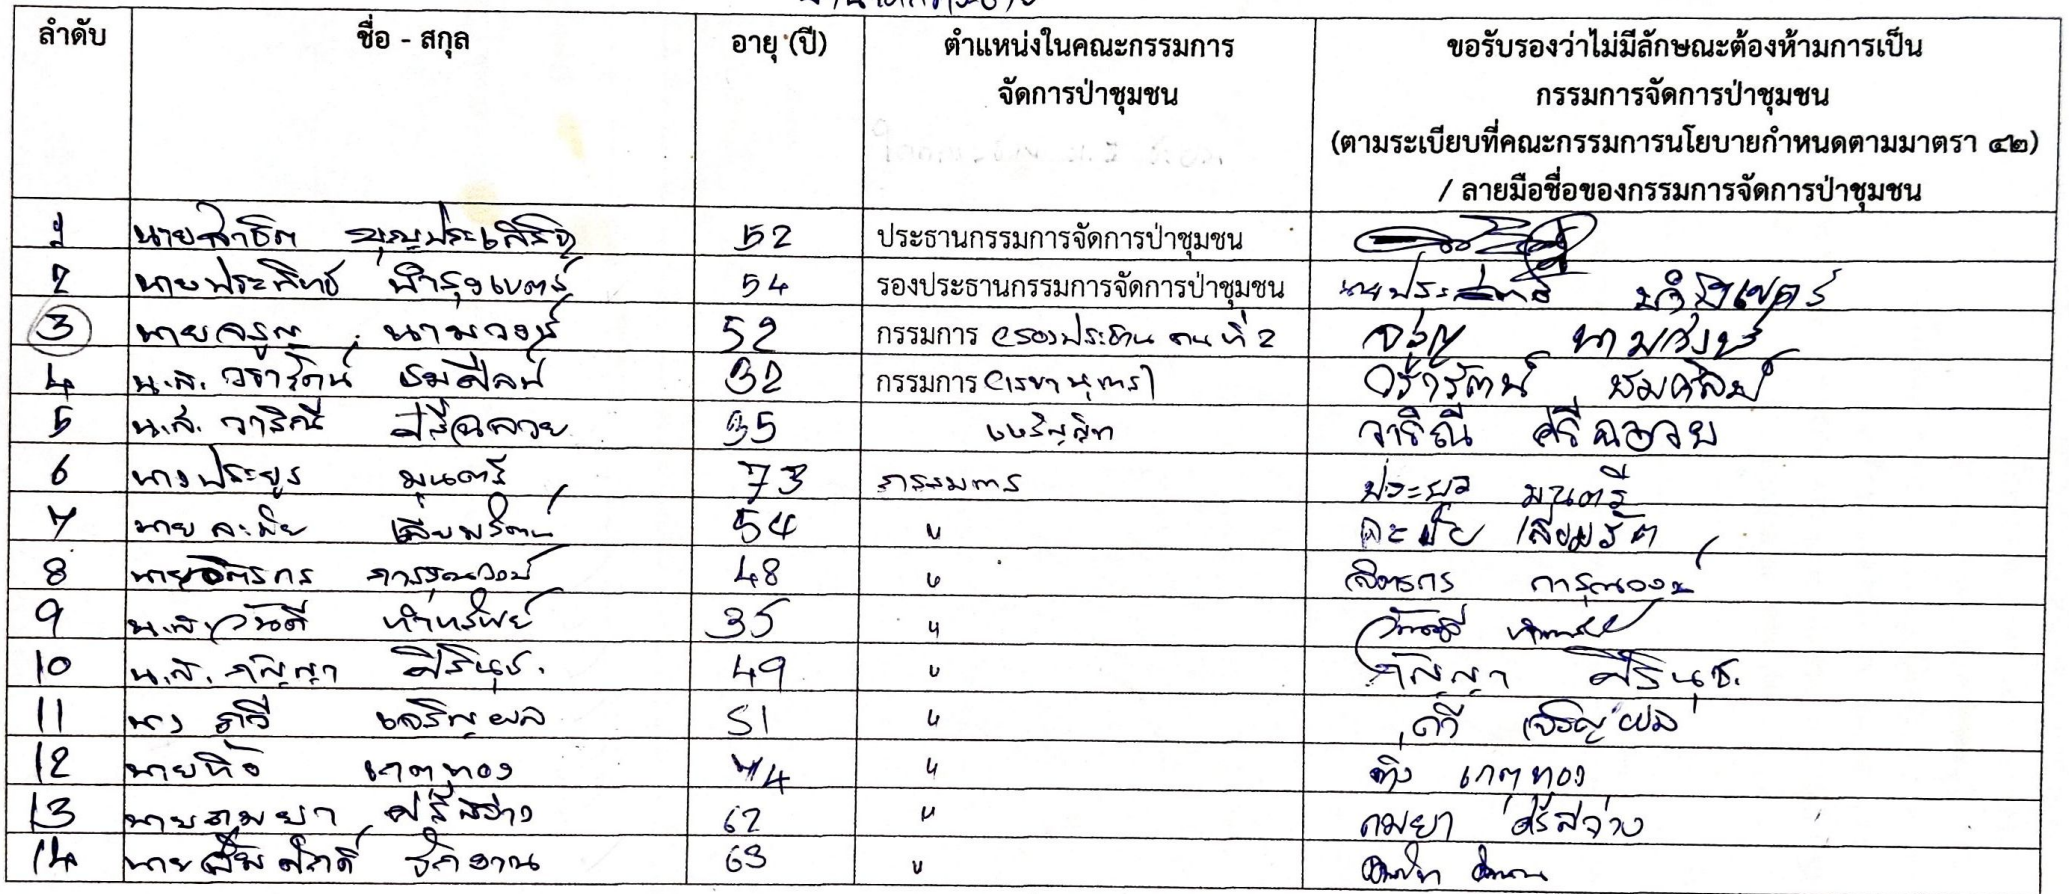 ลำดับ ชื่อ - สกุล อายุ (ปี) ตำแหน่งในคณะกรรมการ ขอรับรองว่าไม่มีลักษณะต้องห้ามการเป็น
จัดการป่าชุมชน กรรมการจัดการป่าชุมชน
(ตามระเบียบที่คณะกรรมการนโยบายกำหนดตามมาตรา ๔๒)
/ ลายมือชื่อของกรรมการจัดการป่าชุมชน
1 นายสาธิต บุญประเสริฐ 52 ประธานกรรมการจัดการป่าชุมชน
2 นายประสิทธิ์ 54 รองประธานกรรมการจัดการป่าชุมชน นายประสิทธิ์
3 นายจรูญ นามวงษ์ 52 กรรมการ (รองประธาน คนที่ 2 จรูญ นามวงษ์
4 น.ส. วรารัตน์ ชมศิลป์ 32 กรรมการ (เลขานุการ) วรารัตน์ ชมศิลป์
5 น.ส. วาริณี ศรีฉลวย 35 เหรัญญิก วาริณี ศรีฉลวย
6 นางประยูร มนตรี 73 กรรมการ ประยูร มนตรี
7 นายละมัย เสียมรัตน์ 54 " ละมัย
8 นายจิตรกร การุณวงษ์ 48 " จิตรกร การุณวงษ์
9 น.ส. วันดี 35 " วันดี
10 น.ส. กัญญา ศิรินุช. 49 " กัญญา ศิรินุช.
11 นาง เจริญผล 51 " เจริญผล
12 นาย เกตุทอง 74 " เกตุทอง
13 นาย ศรีสว่าง 62 " ศรีสว่าง
14 นาย 63 "